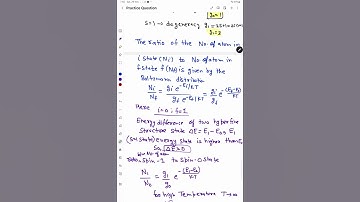 Practice Question
g₀ = 1
S=1 → degeneracy g₁ = 2S+1 = 2(1)+1
g₁ = 3
The ratio of the No. of atom in
i state (Ni) to No of atom in
f state f (Nf) is given by the
Boltzmann distribution
Ni/Nf = gi e^-Ei/KT / gf e^-Ef/KT = gi/gf e^-(Ei-Ef)/KT
Here i = 0, f = 1
Energy difference of two hyperfine
structure state ΔE = E₁ - E₀
energy state is higher than
So, ΔE > 0
Spin-1 to Spin-0 state
N₁/N₀ = g₁/g₀ e^-(E₁-E₀)/KT
for high Temperature T→∞